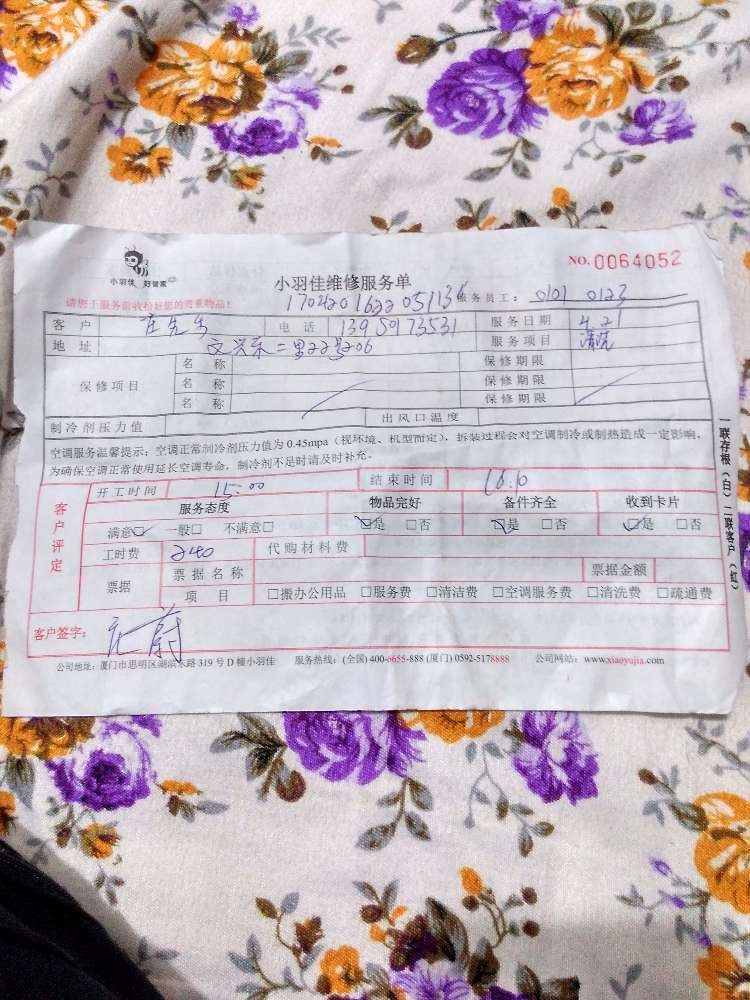 小羽佳 好管家
NO. 0064052
小羽佳维修服务单
请您于服务前收检好您的贵重物品!
1704201622051136 服务员工: 0101 0123
客户 先生 电话 1395973531 服务日期 4.21
地址 文兴东二里22号206 服务项目 清洗
保修项目 名称 保修期限
名称 保修期限
名称 保修期限
制冷剂压力值 出风口温度
空调服务温馨提示:空调正常制冷剂压力值为 0.45mpa(视环境、机型而定),拆装过程会对空调制冷或制热造成一定影响,
为确保空调正常使用延长空调寿命,制冷剂不足时请及时补充。
客户评定
开工时间 15:00 结束时间 16.10
服务态度 物品完好 备件齐全 收到卡片
满意☑ 一般□ 不满意□ ☑是 □否 ☑是 □否 ☑是 □否
工时费 240 代购材料费
票据 票据名称 票据金额
项目 □搬办公用品 □服务费 □清洁费 □空调服务费 □清洗费 □疏通费
客户签字:
公司地址:厦门市思明区湖滨东路 319 号 D 幢小羽佳 服务热线:(全国) 400-0655-888 (厦门) 0592-5178888 公司网站:www.xiaoyujia.com
一联存根(白)二联客户(红)